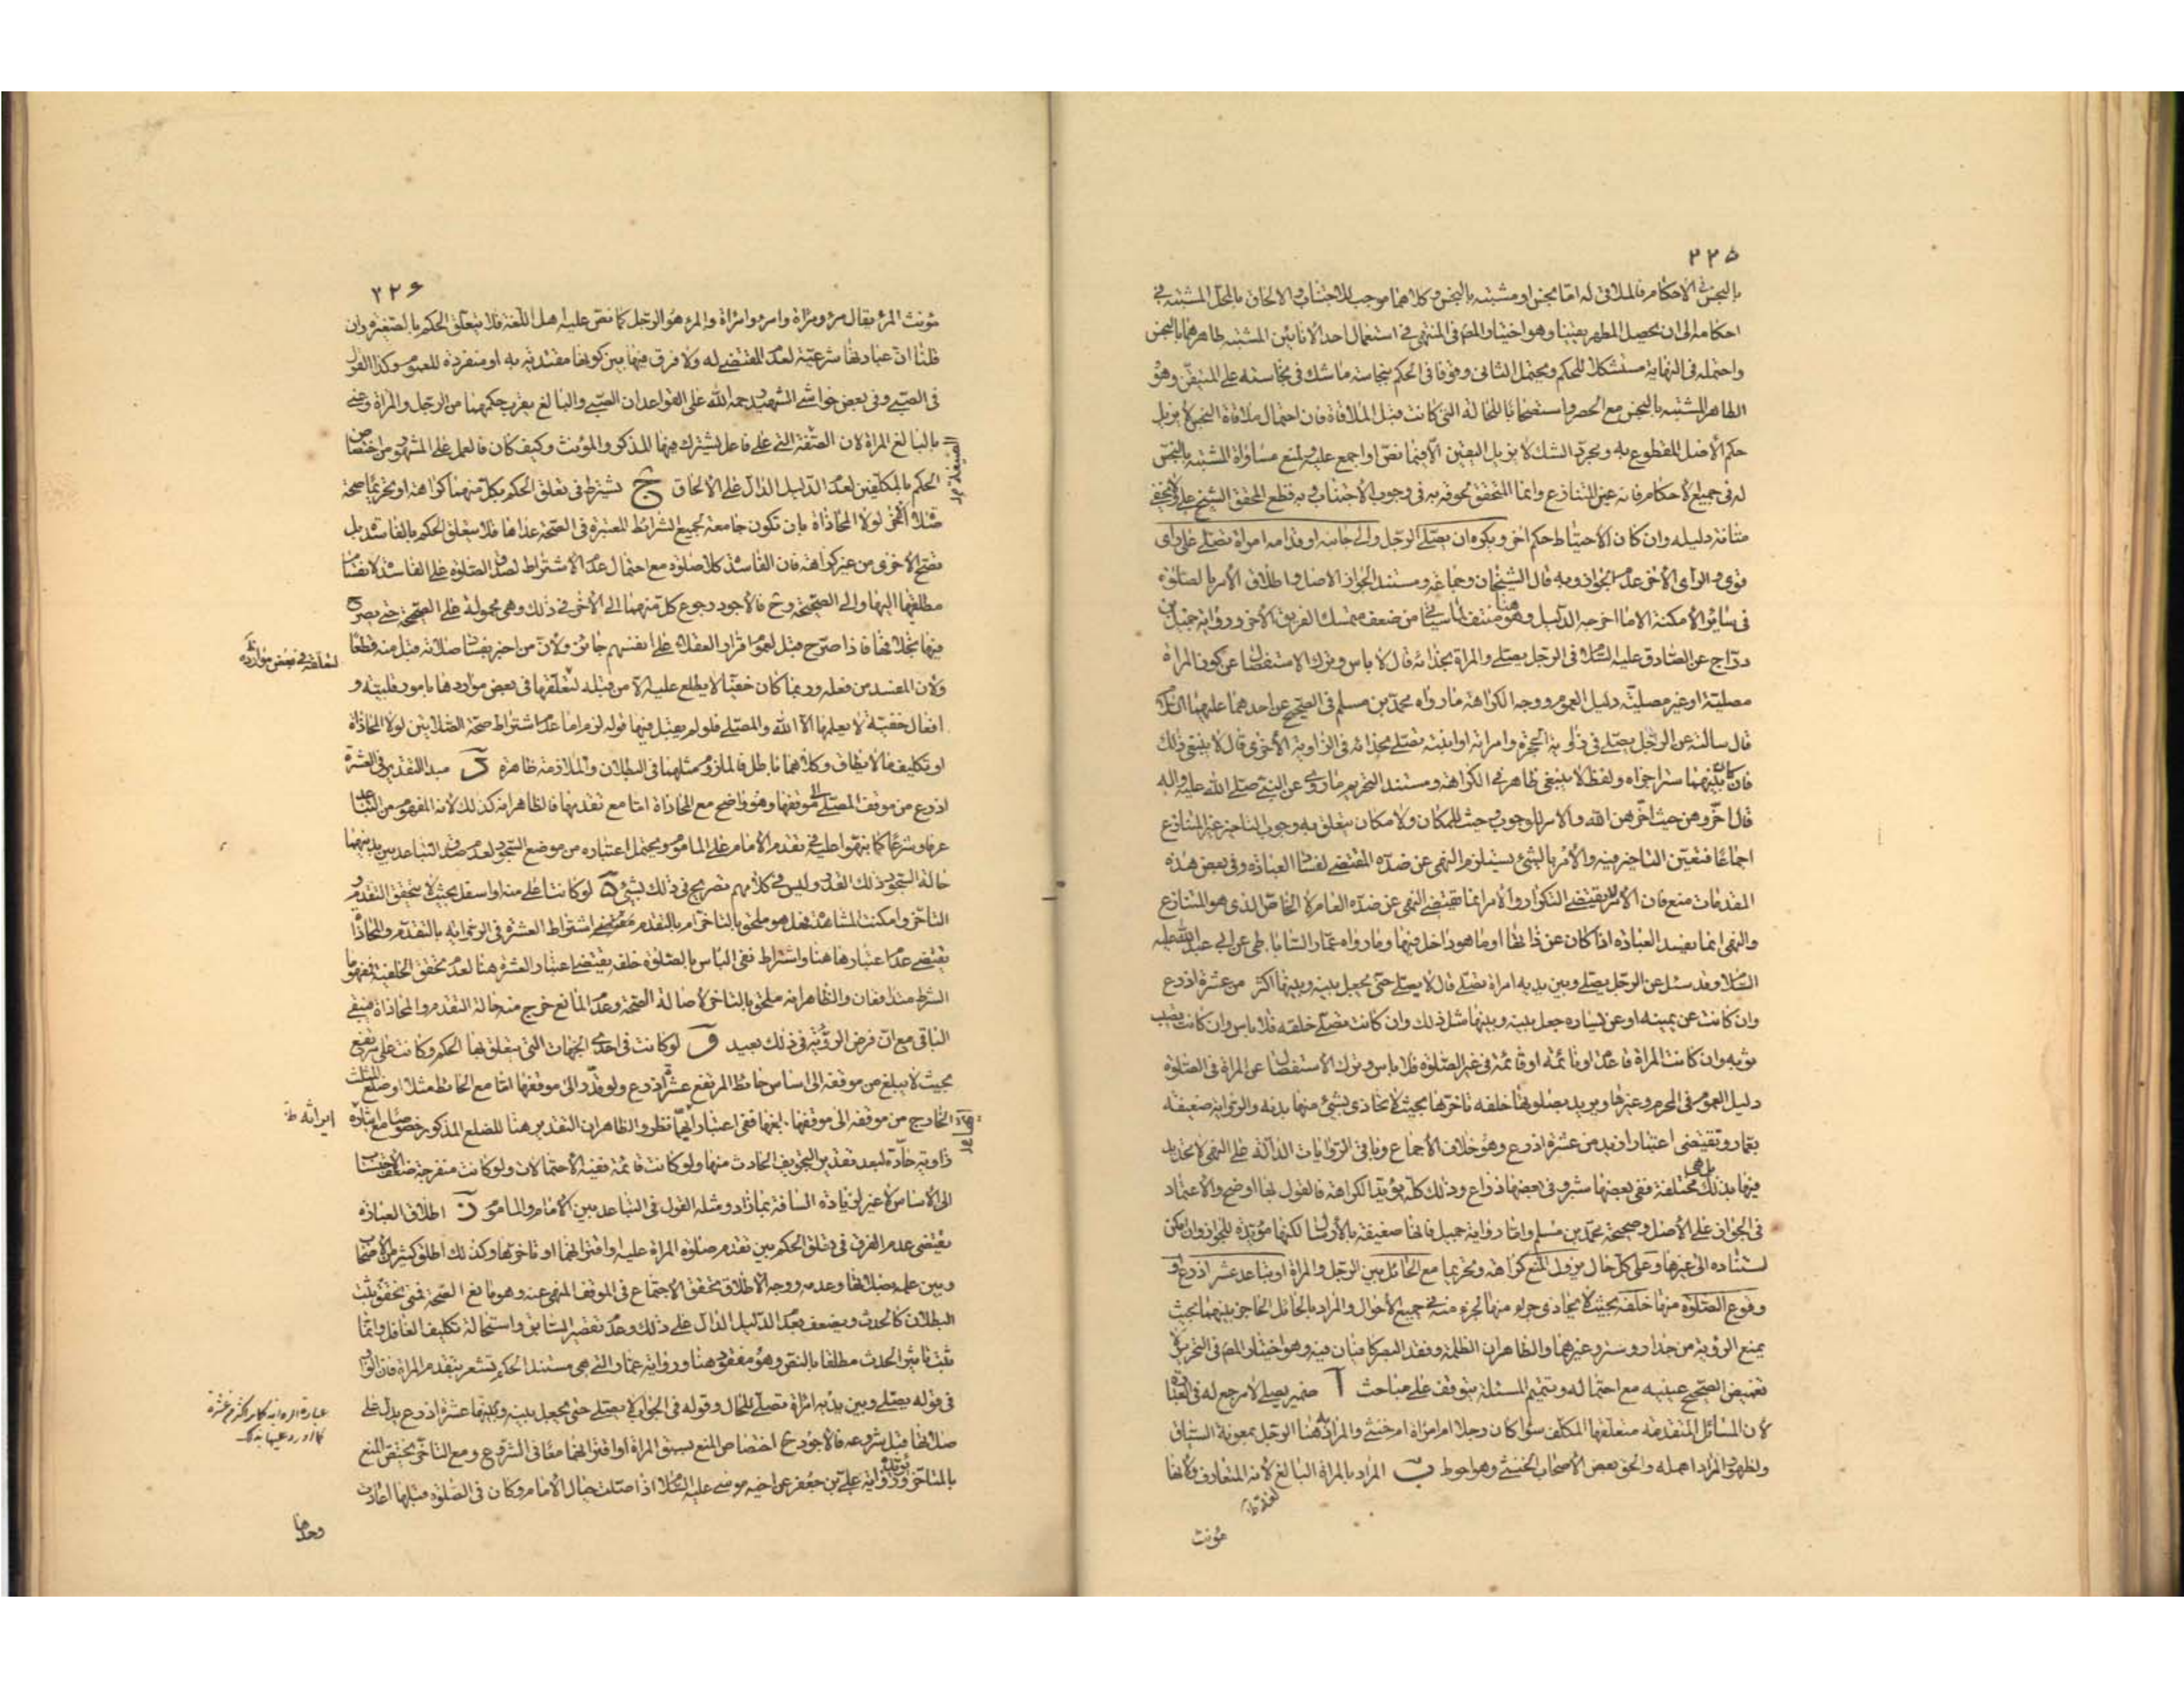 ٢٢٥
بالنجس في الاحكام فالملاقى له اما نجس او مشتبه بالنجس وكلاهما موجب للاجتناب والالحاق بالمحل المشتبه في
احكامه الى ان يحصل المطهر يقينا وهو اختيار المص في المنتهى في استعمال احد الانائين المشتبه طاهرهما بالنجس
واحتمله في النهاية مستشكلا للحكم ويحتمل الثاني وقوفا في الحكم بنجاسة ما شك في نجاسته على المتيقن وهو
الطاهر المشتبه بالنجس مع الحصر واستصحابا للحالة التي كانت قبل الملاقاة فان احتمال ملاقاة النجس لا يزيل
حكم الاصل المقطوع به ومجرد الشك لا يزيل اليقين الا فيما نص او اجمع عليه ولمنع مساواة المشتبه بالنجس
له في جميع الاحكام فانه عين المتنازع وانما المتحقق لحوقه به في وجوب الاجتناب وبه قطع المحقق الشيخ علي ولا يخفى
متانة دليله وان كان الاحتياط حكم اخر ويكره ان يصلي الرجل والى جانبه او قدامه امراة تصلي على راى
قوى والراى الاخر عدم الجواز وبه قال الشيخان وجماعة ومستند الجواز الاصل واطلاق الامر بالصلوة
في سائر الامكنة الا ما اخرجه الدليل وهو هنا منتف لما سياتي من ضعف متمسك الفريق الاخر ورواية جميل بن
دراج عن الصادق عليه السلام في الرجل يصلي والمراة بحذائه قال لا باس وترك الاستفصال عن كون المراة
مصلية او غير مصلية دليل العموم ووجه الكراهة ما رواه محمد بن مسلم في الصحيح عن احدهما عليهما السلام
قال سالته عن الرجل يصلي في زاوية الحجرة وامراته او ابنته تصلي بحذائه في الزاوية الاخرى قال لا ينبغي ذلك
فان كان بينهما ستر اجزاه ولفظ لا ينبغي ظاهر في الكراهة ومستند التحريم ما روى عن النبي صلى الله عليه واله
قال اخروهن من حيث اخرهن الله والامر للوجوب وحيث للمكان ولا مكان يتعلق به وجوب التاخير غير المتنازع
اجماعا فتعين التاخير فيه والامر بالشئ يستلزم النهى عن ضده المقتضي لفساد العبادة وفي بعض هذه
المقدمات منع فان الامر لا يقتضي التكرار والامر انما يقتضي النهى عن ضده العام لا الخاص الذى هو المتنازع
والنهى انما يفسد العبادة اذا كان عن ذاتها او ما هو داخل فيها وما رواه عمار الساباطى عن ابى عبد الله عليه
السلام وقد سئل عن الرجل يصلي وبين يديه امراة تصلي قال لا يصلي حتى يجعل بينه وبينها اكثر من عشرة اذرع
وان كانت عن يمينه او عن يساره جعل بينه وبينها مثل ذلك وان كانت تصلي خلفه فلا باس وان كانت تصيب
ثوبه وان كانت المراة قاعدة او نائمة او قائمة في غير الصلوة فلا باس وترك الاستفصال عن المراة في الصلوة
دليل العموم في المحرم وغيرها ويريد بصلوتها خلفه تاخرها بحيث لا تحاذى بشئ منها بدنه والرواية ضعيفة
بعمار وتقتضى اعتبار ازيد من عشرة اذرع وهو خلاف الاجماع وباقى الروايات الدالة على النهى لا تحديد
فيها بذلك بل هى مختلفة ففى بعضها شبر وفى بعضها ذراع وذلك كله يؤيد الكراهة فالقول بها اوضح والاعتماد
في الجواز على الاصل وصحيحة محمد بن مسلم واما رواية جميل فانها ضعيفة بالارسال لكنها مؤيدة للجواز وان امكن
استناده الى غيرها وعلى كل حال يزول المنع كراهة وتحريما مع الحائل بين الرجل والمراة او تباعد عشر اذرع و
وقوع الصلوة منها خلفه بحيث لا يحاذى جزء منها لجزء منه في جميع الاحوال والمراد بالحائل الحاجز بينهما بحيث
يمنع الرؤية من جدار وستر وغيرهما والظاهر ان الظلمة وفقد البصر كافيان فيه وهو اختيار المص في التحرير لا
تغميض الصحيح عينيه مع احتماله وتتميم المسئلة يتوقف على مباحث آ ضمير يصلي لا مرجع له في العبارة
لان المسائل المتقدمة متعلقها المكلف سواء كان رجلا ام امراة ام خنثى والمراد به هنا الرجل بمعونة السياق
ولظهور المراد اهمله والحق بعض الاصحاب الخنثى وهو احوط ب المراد بالمراة البالغ لانه المتعارف ولانها
لغة ط
مؤنث
٢٢٦
مؤنث المرء يقال مرء ومراة وامرء وامراة والمرء هو الرجل كما نص عليه اهل اللغة فلا يتعلق الحكم بالصغيرة وان
قلنا ان عبادتها شرعية لعدم المقتضي له ولا فرق فيها بين كونها مقتدية به او منفردة للعموم وكذا القول
في الصبي وفى بعض حواشي الشهيد رحمه الله على القواعد ان الصبي والبالغ يقرب حكمهما من الرجل والمراة وعنى
بالبالغ المراة لان الصفة التي على فاعل يشترك فيها المذكر والمؤنث وكيف كان فالعمل على المشهور من اختصاص
الصيغة
الحكم بالمكلفين لعدم الدليل الدال على الالحاق ج يشترط في تعلق الحكم بكل منهما كراهة او تحريما صحة
صلاة الاخر لولا المحاذاة بان تكون جامعة لجميع الشرائط المعتبرة في الصحة عداها فلا يتعلق الحكم بالفاسدة بل
تصح الاخرى من غير كراهة فان الفاسدة كلا صلوة مع احتمال عدم الاشتراط لصدق الصلوة على الفاسدة لانقسام
مطلقها اليها والى الصحيحة وح فالاجود رجوع كل منهما الى الاخر في ذلك وهى محمولة على الصحيحة حتى يصرح
فيها بخلافها فاذا صرح قبل لعموم اقرار العقلاء على انفسهم جائز ولان من اخبر بفساد صلاته قبل منه قطعا
ولان المفسد من فعله وربما كان خفيا لا يطلع عليه الا من قبله لتعلقها في بعض مواردها بامور قلبية و
لتعلقه في بعض موارده
افعال خفية لا يعلمها الا الله والمصلي فلو لم يقبل فيها قوله لزم اما عدم اشتراط صحة الصلاتين لولا المحاذاة
او تكليف ما لا يطاق وكلاهما باطل فالملزوم مثلهما في البطلان والملازمة ظاهرة د مبدا التقدير في العشرة
اذرع من موقف المصلي الى موقفها وهو واضح مع المحاذاة اما مع تقدمها فالظاهر انه كذلك لانه المفهوم من التباعد
عرفا وشرعا كما نبهوا عليه في تقدم الامام على الماموم ويحتمل اعتباره من موضع السجود لعدم صدق التباعد بين بدنيهما
حالة السجود بذلك القدر وليس في كلامهم تصريح في ذلك بشئ ه لو كانت اعلى منه او اسفل بحيث لا يتحقق التقدم و
التاخر وامكنت المشاهدة فهل هو ملحق بالتاخر ام بالتقدم مقتضى اشتراط العشرة في الرواية بالتقدم والمحاذاة
يقتضي عدم اعتبارها هنا واشتراط نفى الباس بالصلوة خلفه يقتضي اعتبار العشرة هنا لعدم تحقق الخلفية فمفهوما
الشرط متدافعان والظاهر انه ملحق بالتاخر لاصالة الصحة وعدم المانع خرج منه حالة التقدم والمحاذاة فيبقى
الباقى مع ان فرض الرؤية في ذلك بعيد و لو كانت في احدى الجهات التي يتعلق بها الحكم وكانت على مرتفع
بحيث لا يبلغ من موقفه الى اساس حائط المرتفع عشرة اذرع ولو قدر الى موقفها اما مع الحائط مثلا او ضلع المثلث
الخارج من موقفه الى موقفها بلغها ففى اعتبار ايهما نظر والظاهر ان التقدير هنا للضلع المذكور خصوصا مع ايثاره
زاوية حادة لبعد تقدير التجويف الحادث منها ولو كانت قائمة ففيه الاحتمالان ولو كانت منفرجة
الى الاساس لا غير لزيادة المسافة بما زاد ومثله القول في التباعد بين الامام والماموم ز اطلاق العبارة
يقتضى عدم الفرق في تعلق الحكم بين تقدم صلوة المراة عليه واقترانهما او تاخرها وكذلك اطلق كثير من الاصحاب
وبين علمه بصلاتها وعدمه ووجه الاطلاق تحقق الاجتماع في الموقف المنهى عنه وهو مانع الصحة فمتى تحقق ثبت
البطلان كالحدث ويضعف بعدم الدليل الدال على ذلك وعدم تقصير السابق واستحالة تكليف الغافل وانما
ثبت تاثير الحدث مطلقا بالنص وهو مفقود هنا ورواية عمار التي هى مستند الحكم تشعر بتقدم المراة فان الواو
في قوله يصلي وبين يديه امراة تصلي للحال وقوله في الجواب لا يصلي حتى يجعل بينه وبينها عشرة اذرع يدل على
صلاتها قبل شروعه فالاجود ح اختصاص المنع بسبق المراة او اقترانهما معا في الشروع ومع التاخر يختص المنع
بالمتاخر ورواية علي بن جعفر عن اخيه موسى عليه السلام اذا صلت حيال الامام وكان في الصلوة قبلها اعادت
وحدها